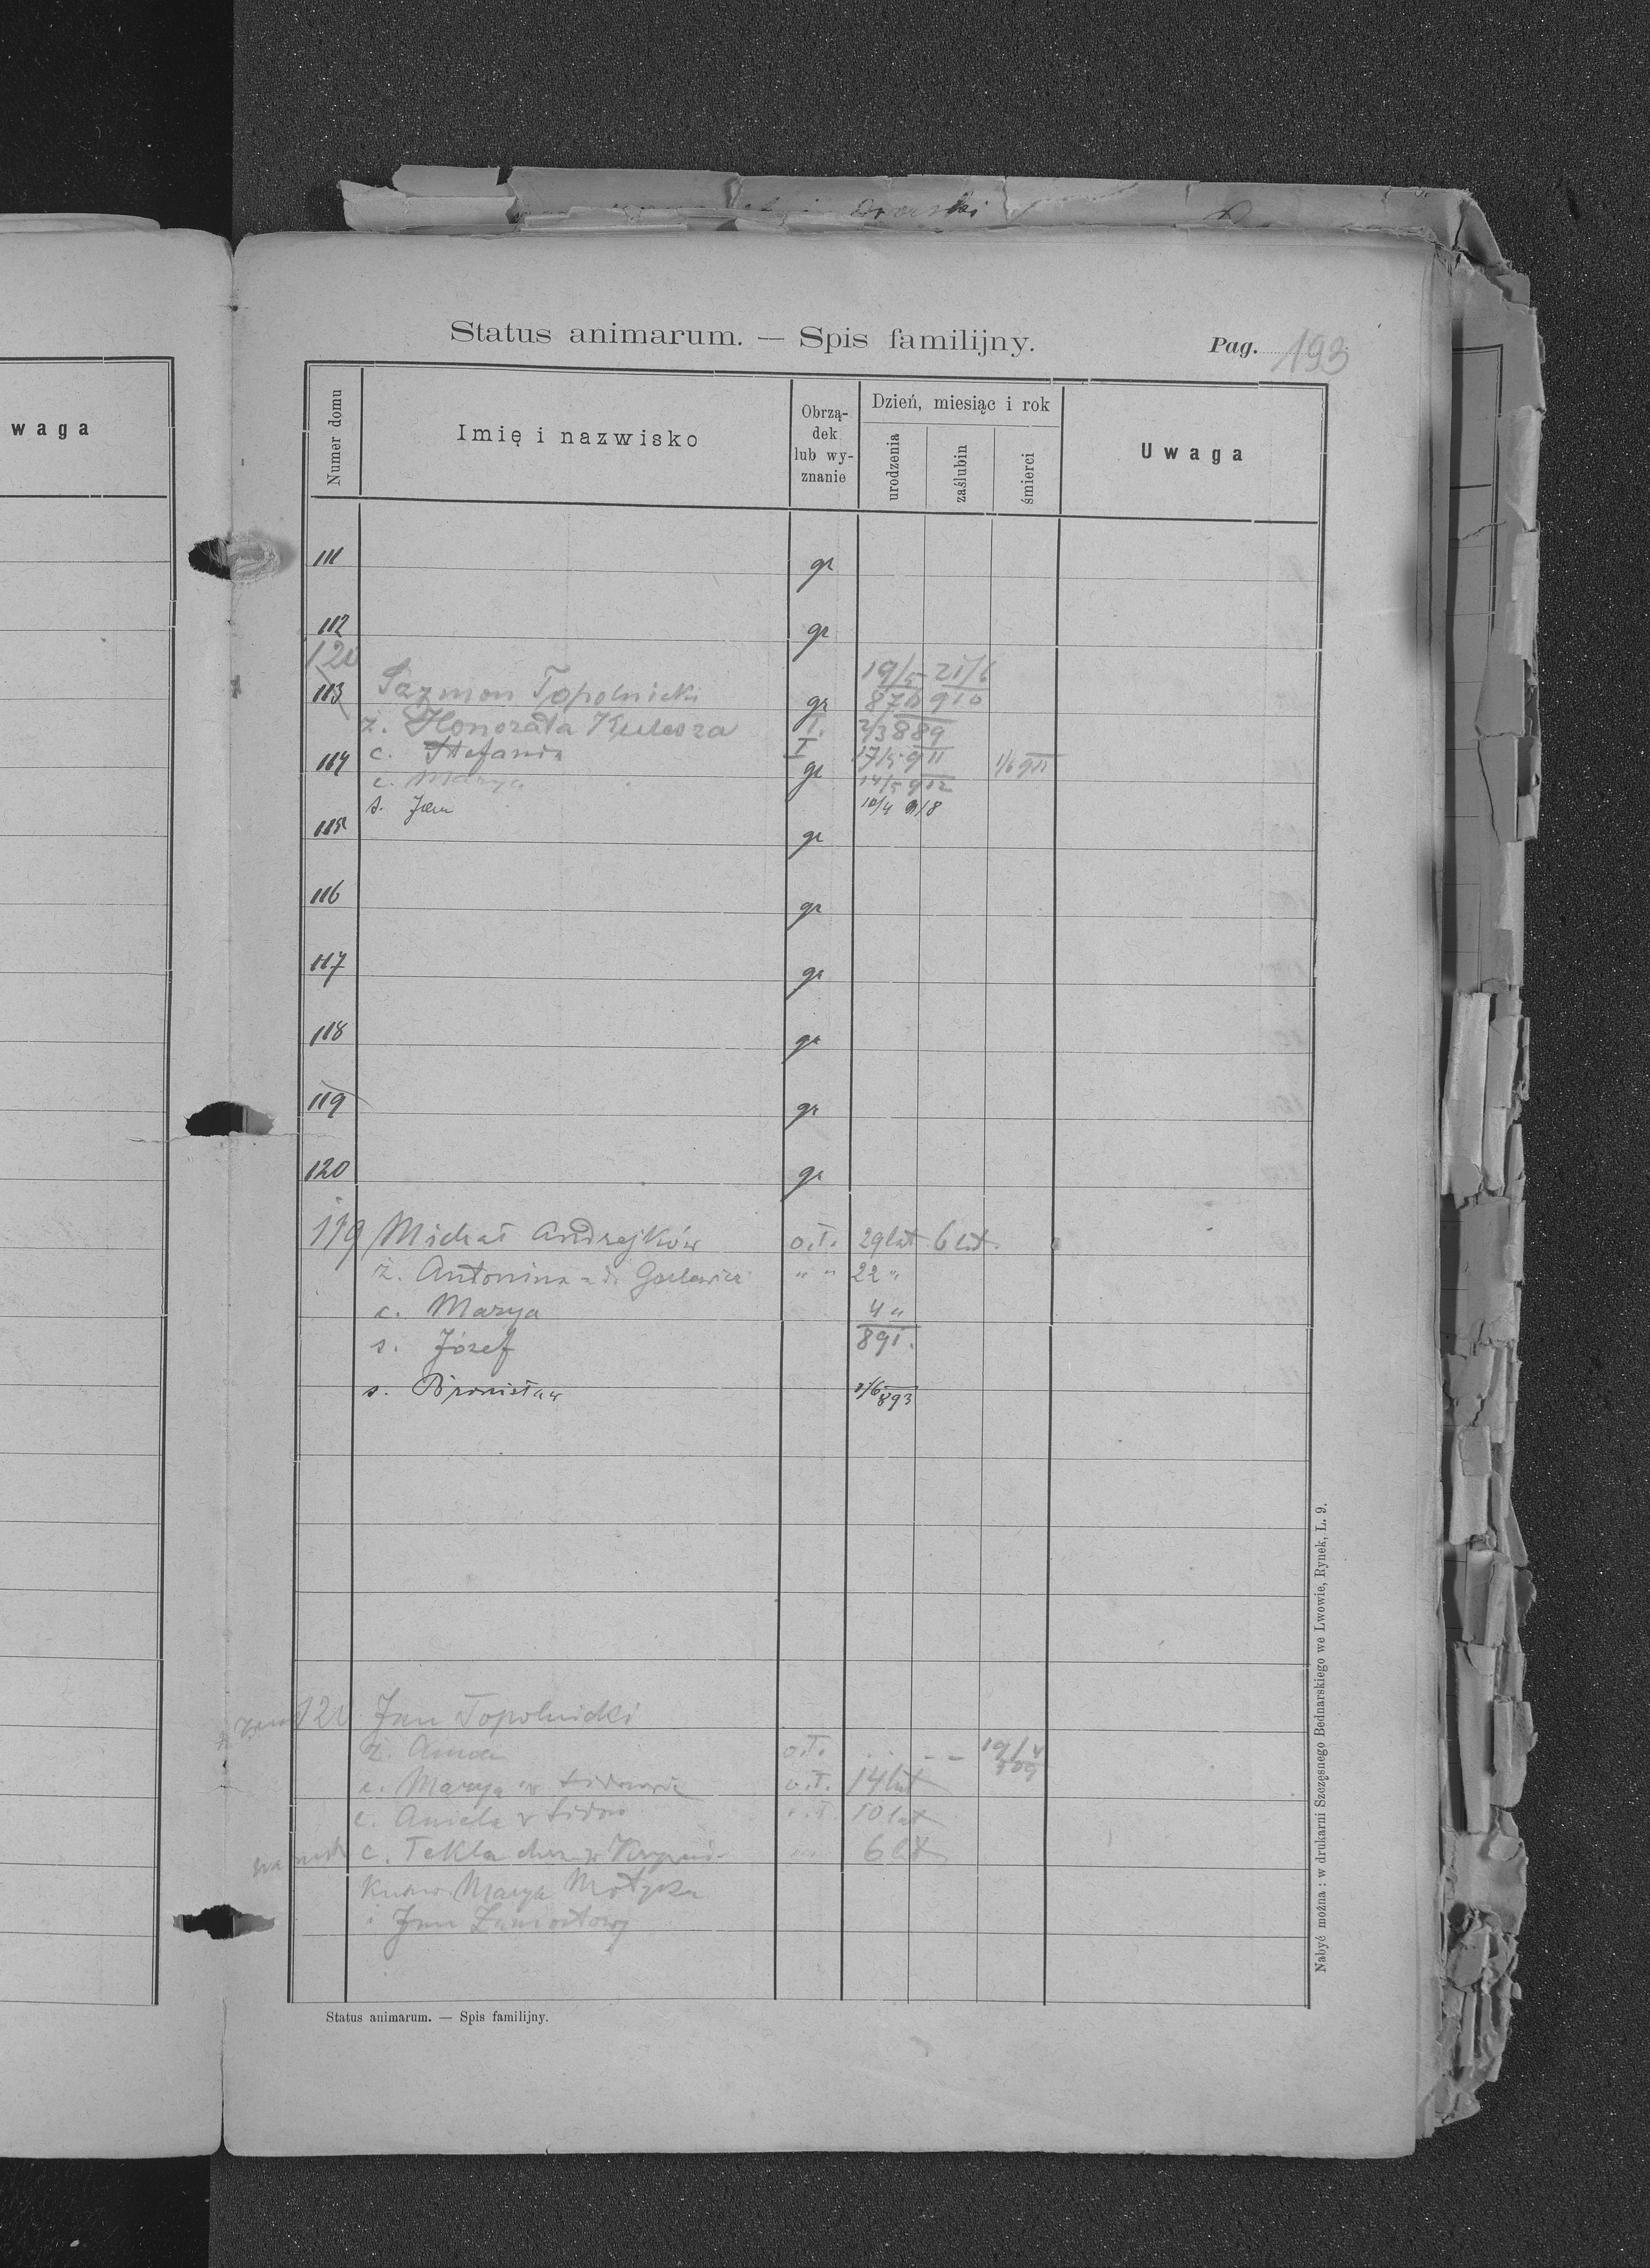 waga
Status animarum. — Spis familijny.
Pag. 193
Numer domu
Imię i nazwisko
Obrzą-
dek
lub wy-
znanie
Dzień, miesiąc i rok
urodzenia
zaślubin
śmierci
Uwaga
111 gr
112 gr
120
19/5 21/6
113 Szymon Topolnicki gr 878 910
ż. Honorata Kulesza ł. 2/3 889
114 c. Stefania gr 17/5 911 1/6 911
c. Marya 14/5 912
s. Jan 10/4 918
115 gr
116 gr
117 gr
118 gr
119 gr
120 gr
119 Michał Andrejków o.ł. 29 lat 6 lat
ż. Antonina " " 22 "
c. Marya 4 "
s. Józef 891.
s. Bronisław 893
120 Jan Topolnicki
ż. Anna o.ł. 19/V
909
c. Marya w o.ł. 14 lat
c. Aniela 10 lat
c. Tekla 6 lat
Marya Motyka
i Jan
Status animarum. — Spis familijny.
Nabyć można : w drukarni Szczęsnego Bednarskiego we Lwowie, Rynek, L. 9.